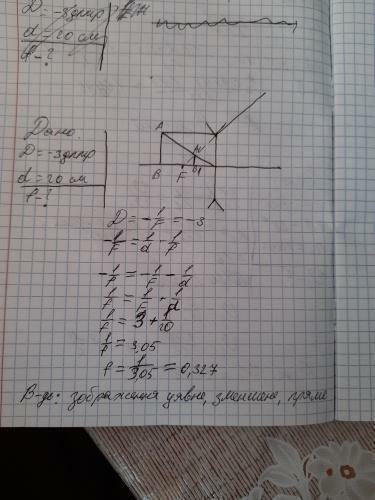 D = -3 дптр
d = 20 см
f - ?
Дано:
D = -3 дптр
d = 20 см
f - ?
A
B F B1
D = -1/F = -3
-1/F = 1/d - 1/f
-1/f = -1/F - 1/d
1/f = 1/F + 1/d
1/f = 3 + 1/20
1/f = 3,05
f = 1/3,05 = 0,327
В-дь: зображення уявне, зменшене, пряме